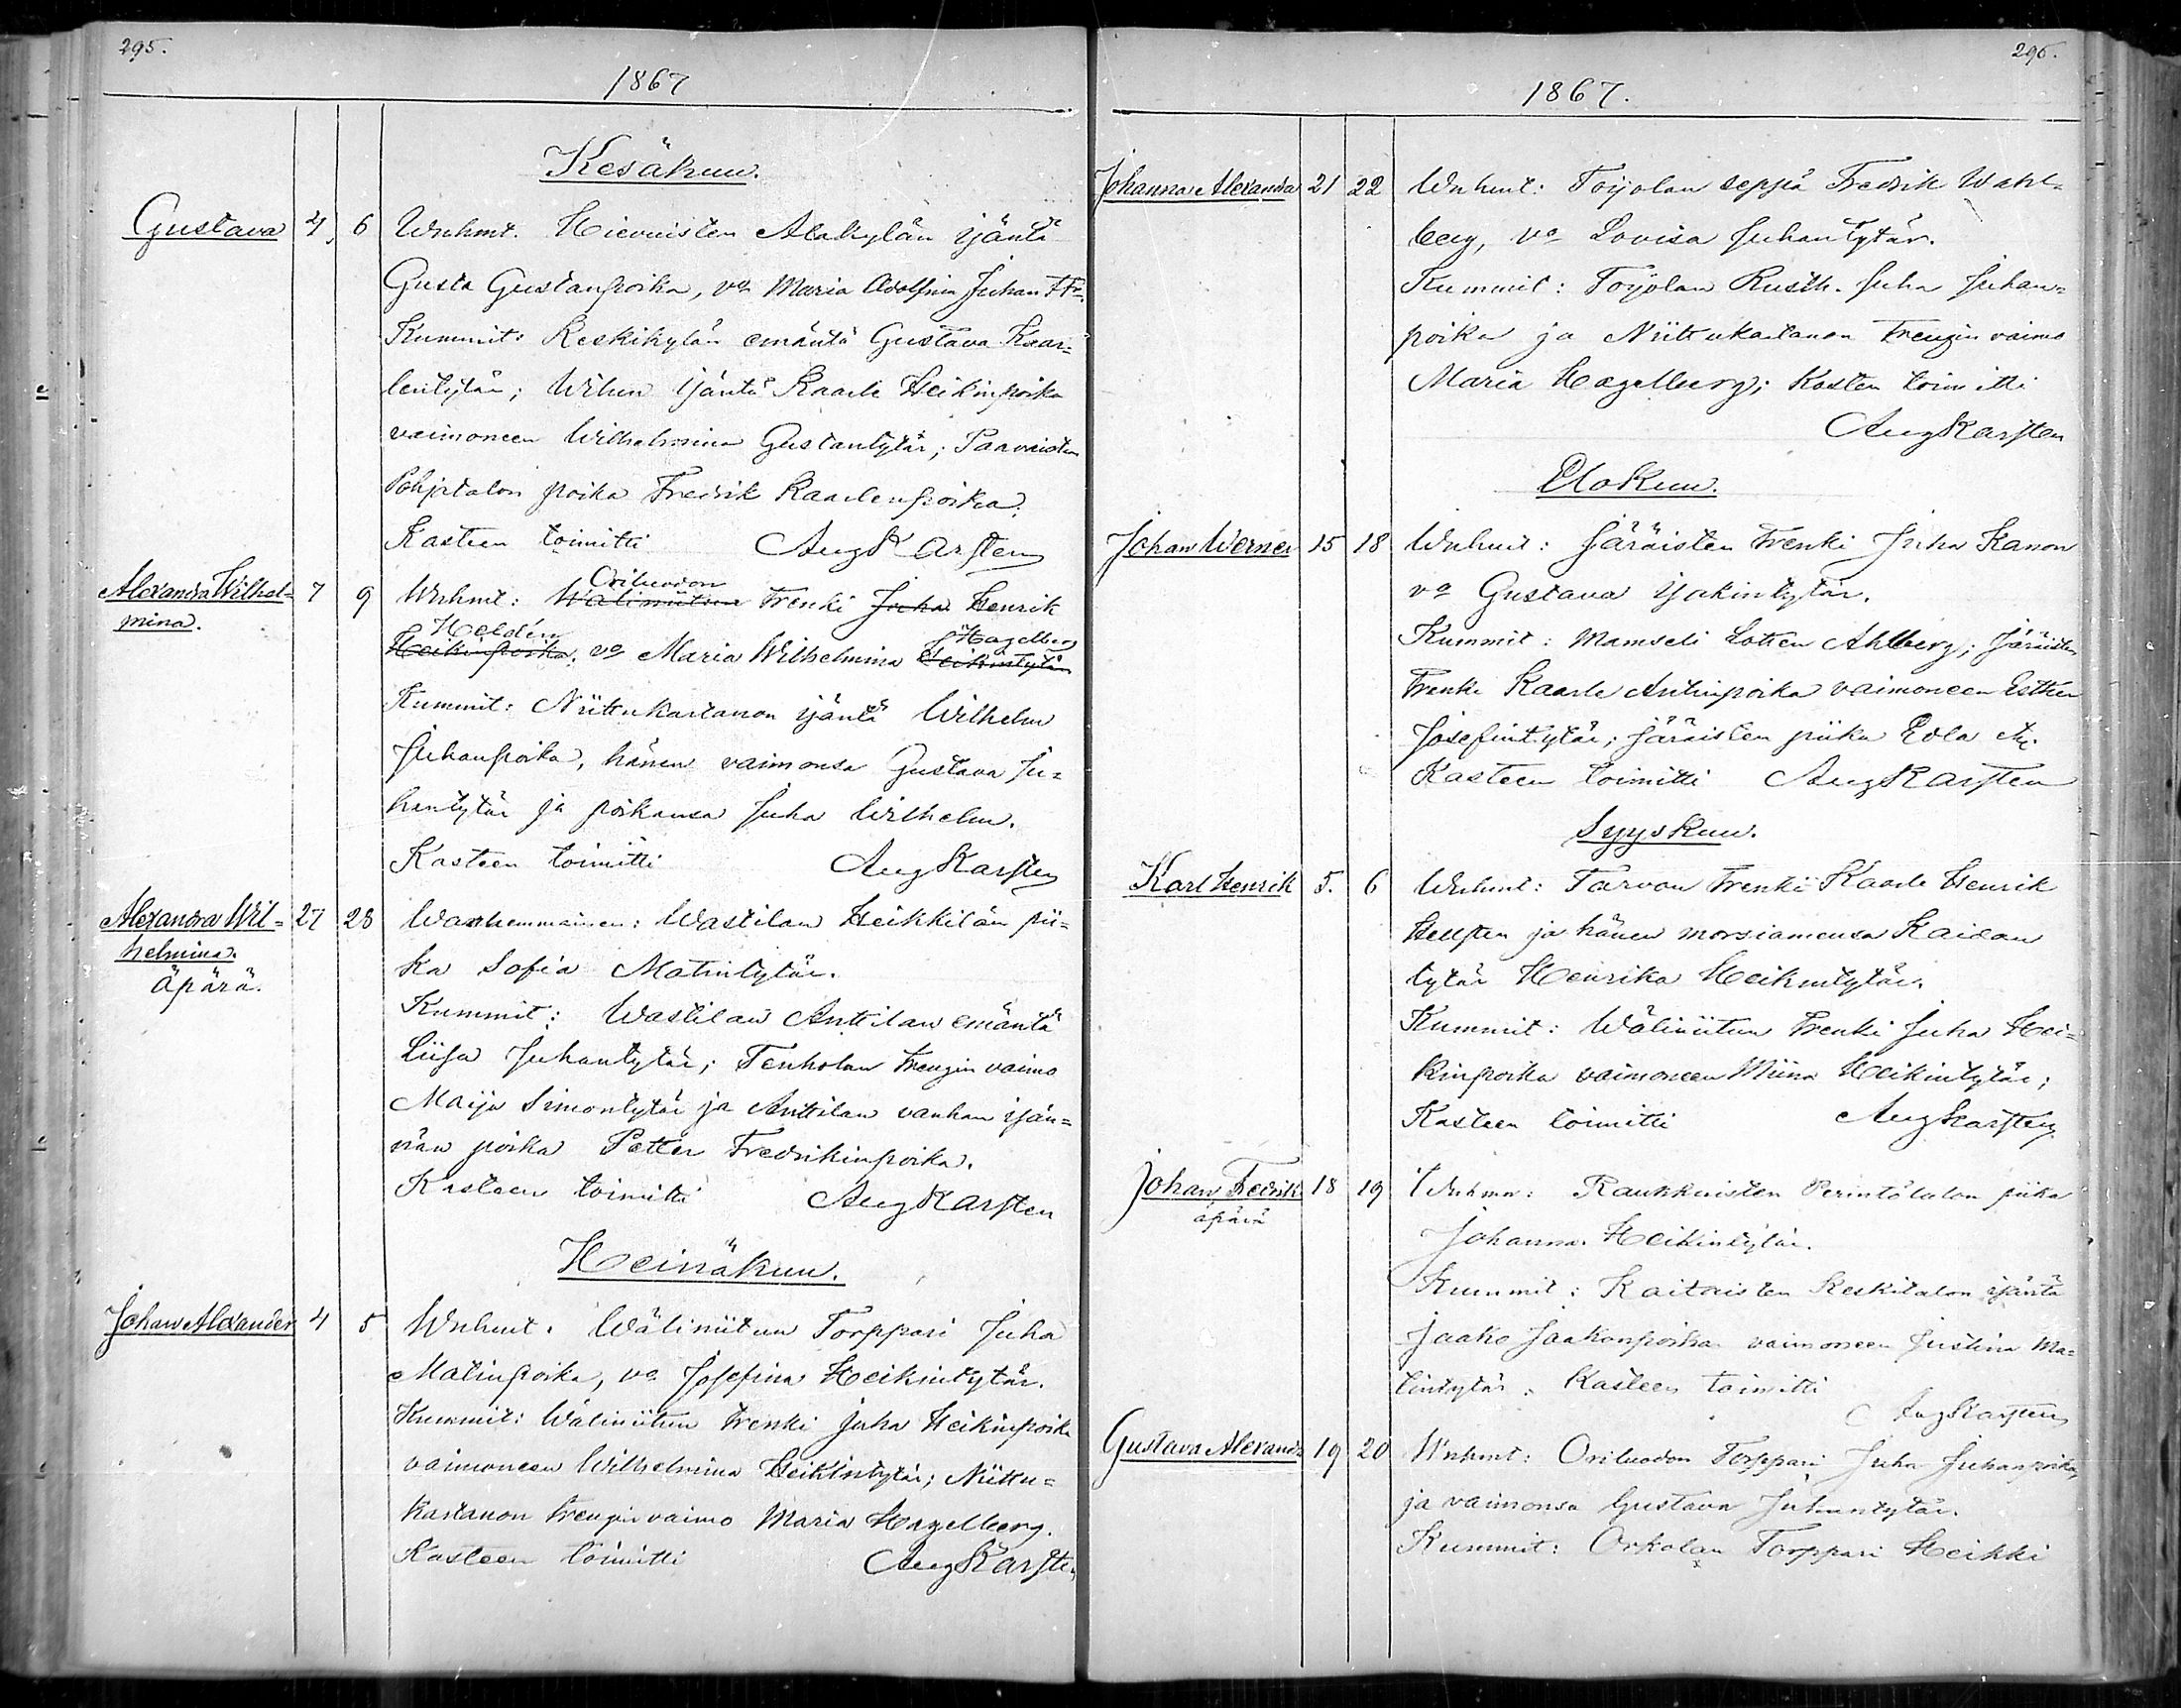 295.
1867
Kesäkuu.
Gustava 4. 6 Wnhmt. Hievaisten Alakylän isäntä
Gusta Gustanpoika, vo Maria Adolfina Juhan
Kummit: Keskikylän emäntä Gustava Kaar=
lentytär; Wihun isäntä Kaarle Heikinpoika
vaimoneen Wilhelmina Gustantytär; Paavaisten
Pohjatalon poika Fredrik Kaarlenpoika.
Kasteen toimitti Aug Karsten
Alexandra Wilhel= 7 9 Wnhmt: Wäliniitun Oriluodon trenki Juha Henrik
mina. Heikinpoika Heldén, vo Maria Wilhelmina Heikintytär Hagelberg
Kummit: Niittukartanon isäntä Wilhelm
Juhanpoika, hänen vaimonsa Gustava Ju=
hantytär ja poikansa Juha Wilhelm.
Kasteen toimitti Aug Karsten
Alexandra Wil= 27 28 Wanhemmainen: Wastilan Heikkilän pii=
helmina. ka Sofia Matintytär.
äpärä.
Kummit: Wastilan Anttilan emäntä
Liisa Juhantytär; Tenholan trengin vaimo
Maija Simontytär ja Anttilan vanhan isän=
nän poika Petter Fredrikinpoika.
Kasteen toimitti Aug Karsten
Heinäkuu.
Johan Alexander 4 5 Wnhmt. Wäliniitun Torppari Juha
Matinpoika, vo Josefina Heikintytär.
Kummit: Wäliniitun trenki Juha Heikinpoika
vaimoneen Wilhelmina Heikintytär; Niittu=
kartanon trengin vaimo Maria Hagelberg.
Kasteen toimitti Aug Karsten
296.
1867.
Johanna Alexandra 21 22 Wnhmt: Toijolan seppä Fredrik Wahl=
berg, vo Lovisa Juhantytär.
Kummit: Toijolan Rusth. Juha Juhan=
poika ja Niittukartanon trengin vaimo
Maria Hagelberg; Kasten toimitti
Aug Karsten
Elokuu.
Johan Werner 15 18 Wnhmt: Järäisten trenki Juha Kanon
vo Gustava Isakintytär.
Kummit: Mamseli Lotten Ahlberg; Järäisten
trenki Kaarle Antinpoika vaimoneen Esther
Josefintytär; Järäisten piika Edla
Kasteen toimitti Aug Karsten
Syyskuu.
Karl Henrik 5. 6 Wnhmt: Tarvon trenki Kaarle Henrik
Hellsten ja hänen morsiamensa Kaidan
tytär Henrika Heikintytär.
Kummit: Wäliniitun trenki Juha Hei=
kinpoika vaimoneen Miina Heikintytär;
Kasteen toimitti Aug Karsten
Johan Fredrik 18 19 Wnhmn: Raukkaisten Perintötalon piika
äpärä Johanna Heikintytär.
Kummit: Kaitaisten Keskitalon isäntä
Jaako Jaakonpoika vaimoneen Justina Ma=
tintytär. Kasteen toimitti
Aug Karsten
Gustava Alexandra 19 20 Wnhmt: Oriluodon Torppari Juha Juhanpoika,
ja vaimonsa Gustava Juhantytär.
Kummit: Orkolan Torppari Heikki